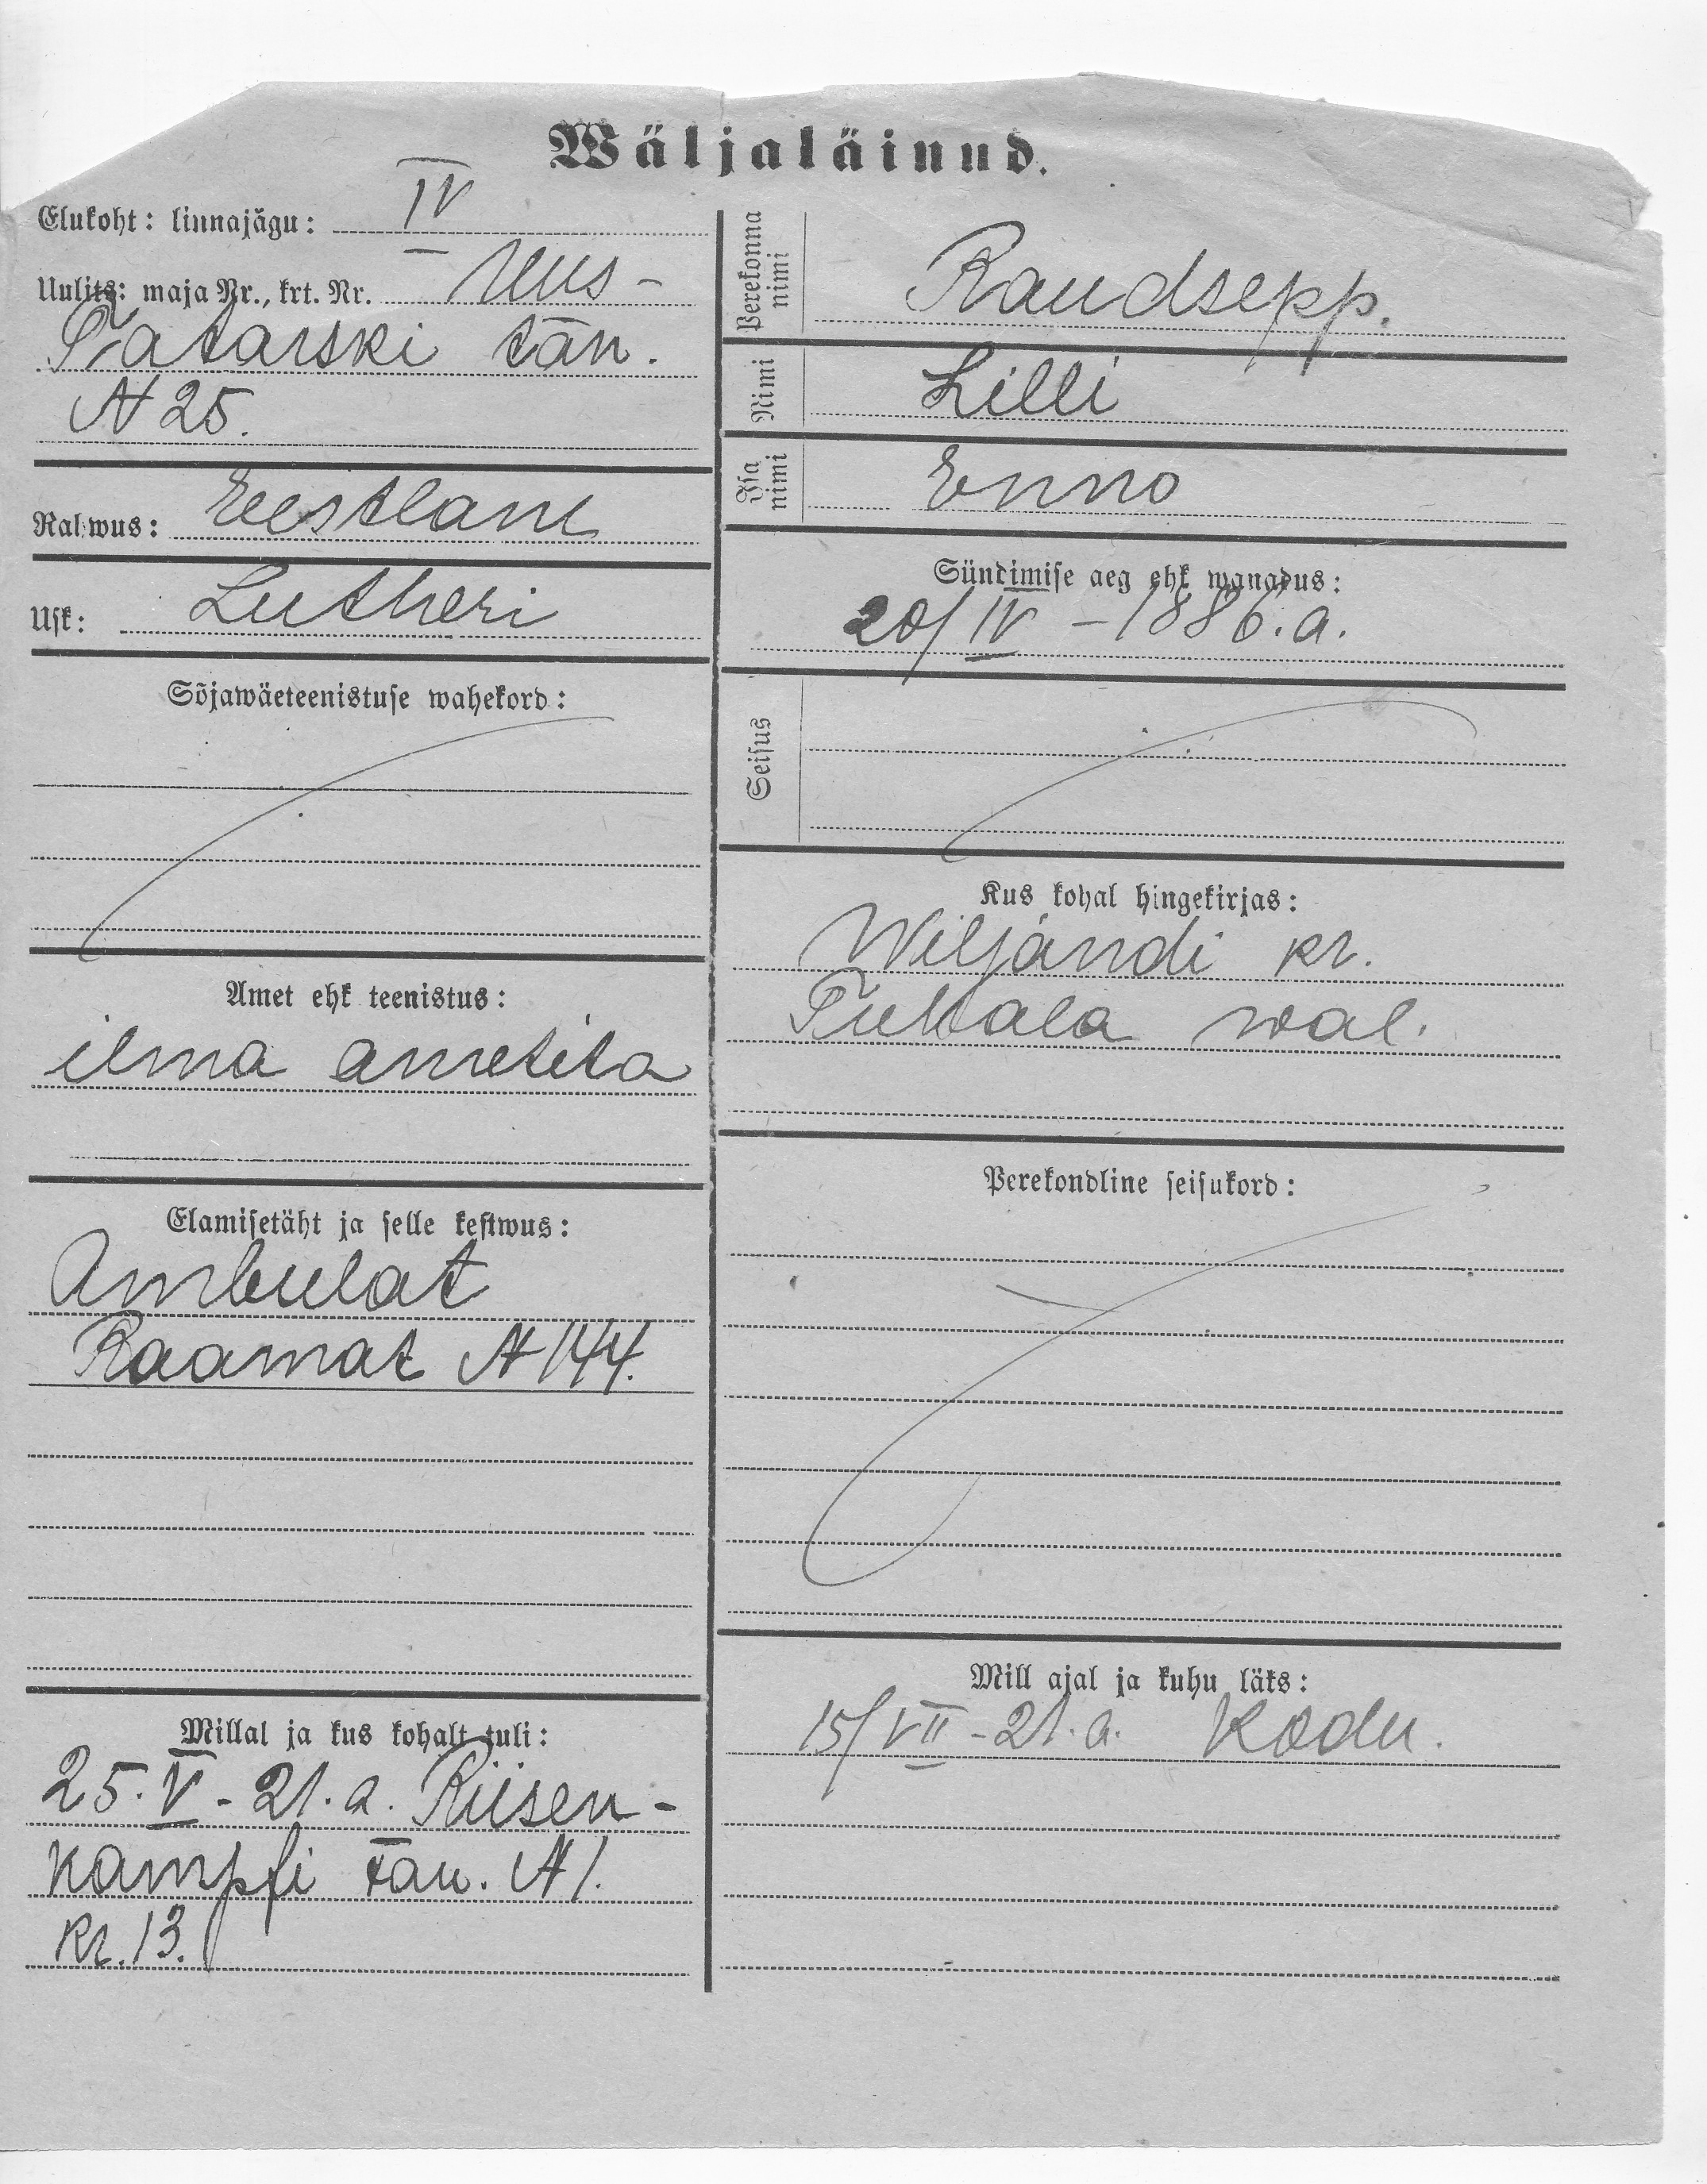 Wäljaläinud.
Elukoht: linnajägu: IV
Uulits: maja Nr., krt. Nr. Uus-
Tatarski tän.
N 25.
Rahwus: Eestlane
Usk: Lutheri
Sõjawäeteenistuse wahekord:
Amet ehk teenistus:
ilma ametita
Elamisetäht ja selle kestwus:
Ambulat
Raamat N 144.
Millal ja kus kohalt tuli:
25. V - 21. a. Riisen-
kampfi tän. N 1.
kr. 13.
Perekonna nimi Raudsepp.
Nimi Lilli
Isa nimi Enno
Sündimise aeg ehk wanadus:
20/IV - 1886. a.
Seisus
Kus kohal hingekirjas:
Wiljandi kr.
Tuhala wal.
Perekondline seisukord:
Mill ajal ja kuhu läks:
15/VII - 21. a. Kodu.